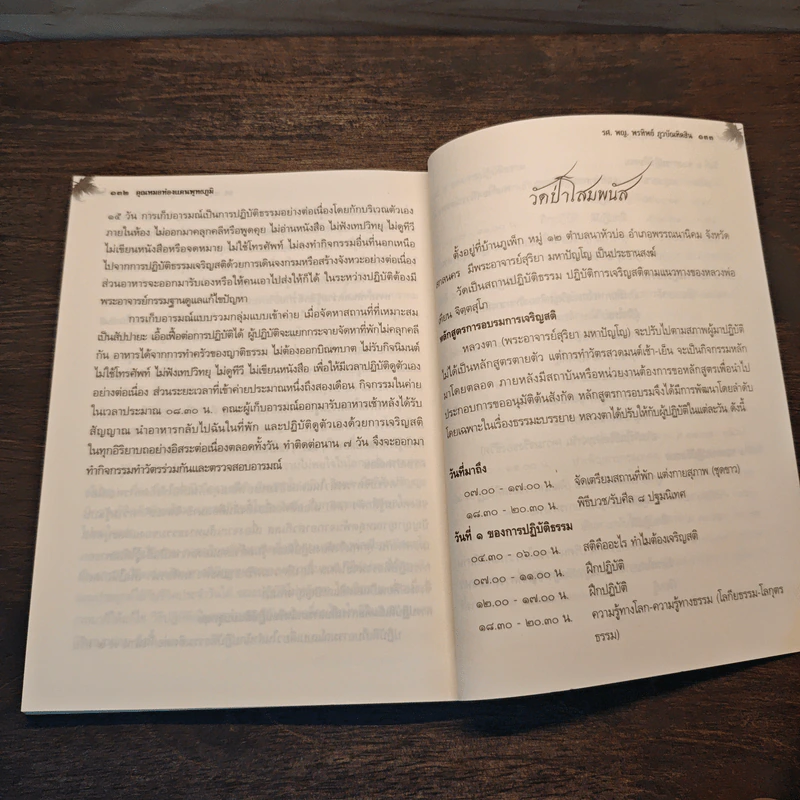 ๑๓๒ คุณหมอท่องแดนพุทธภูมิ
๑๕ วัน การเก็บอารมณ์เป็นการปฏิบัติธรรมอย่างต่อเนื่องโดยกักบริเวณตัวเอง
ภายในห้อง ไม่ออกมาคลุกคลีหรือพูดคุย ไม่อ่านหนังสือ ไม่ฟังเทปวิทยุ ไม่ดูทีวี
ไม่เขียนหนังสือหรือจดหมาย ไม่ใช้โทรศัพท์ ไม่ลงทำกิจกรรมอื่นที่นอกเหนือ
ไปจากการปฏิบัติธรรมเจริญสติด้วยการเดินจงกรมหรือสร้างจังหวะอย่างต่อเนื่อง
ส่วนอาหารจะออกมารับเองหรือให้คนเอาไปส่งให้ก็ได้ ในระหว่างปฏิบัติต้องมี
พระอาจารย์กรรมฐานดูแลแก้ไขปัญหา
การเก็บอารมณ์แบบรวมกลุ่มแบบเข้าค่าย เมื่อจัดหาสถานที่ที่เหมาะสม
เป็นสัปปายะ เอื้อเฟื้อต่อการปฏิบัติได้ ผู้ปฏิบัติจะแยกกระจายจัดหาที่พักไม่คลุกคลี
กัน อาหารได้จากการทำครัวของญาติธรรม ไม่ต้องออกบิณฑบาต ไม่รับกิจนิมนต์
ไม่ใช้โทรศัพท์ ไม่ฟังเทปวิทยุ ไม่ดูทีวี ไม่เขียนหนังสือ เพื่อให้มีเวลาปฏิบัติดูตัวเอง
อย่างต่อเนื่อง ส่วนระยะเวลาที่เข้าค่ายประมาณหนึ่งถึงสองเดือน กิจกรรมในค่าย
ในเวลาประมาณ ๐๘.๓๐ น. คณะผู้เก็บอารมณ์ออกมารับอาหารเช้าหลังได้รับ
สัญญาณ นำอาหารกลับไปฉันในที่พัก และปฏิบัติดูตัวเองด้วยการเจริญสติ
ในทุกอิริยาบถอย่างอิสระต่อเนื่องตลอดทั้งวัน ทำติดต่อนาน ๗ วัน จึงจะออกมา
ทำกิจกรรมทำวัตรร่วมกันและตรวจสอบอารมณ์
รศ. พญ. พรทิพย์ ภูวบัณฑิตสิน ๑๓๓
วัดป่าโสมพนัส
ตั้งอยู่ที่บ้านภูเพ็ก หมู่ ๑๒ ตำบลนาหัวบ่อ อำเภอพรรณนานิคม จังหวัด
มีพระอาจารย์สุริยา มหาปัญโญ เป็นประธานสงฆ์
วัดเป็นสถานปฏิบัติธรรม ปฏิบัติการเจริญสติตามแนวทางของหลวงพ่อ
จิตฺตสุโภ
หลักสูตรการอบรมการเจริญสติ
หลวงตา (พระอาจารย์สุริยา มหาปัญโญ) จะปรับไปตามสภาพผู้มาปฏิบัติ
ไม่ได้เป็นหลักสูตรตายตัว แต่การทำวัตรสวดมนต์เช้า-เย็น จะเป็นกิจกรรมหลัก
มาโดยตลอด ภายหลังมีสถาบันหรือหน่วยงานต้องการขอหลักสูตรเพื่อนำไป
ประกอบการขออนุมัติต้นสังกัด หลักสูตรการอบรมจึงได้มีการพัฒนาโดยลำดับ
โดยเฉพาะในเรื่องธรรมะบรรยาย หลวงตาได้ปรับให้กับผู้ปฏิบัติในแต่ละวัน ดังนี้
วันที่มาถึง
๐๗.๐๐ - ๑๗.๐๐ น. จัดเตรียมสถานที่พัก แต่งกายสุภาพ (ชุดขาว)
๑๘.๓๐ - ๒๐.๓๐ น. พิธีบวช/รับศีล ๘ ปฐมนิเทศ
วันที่ ๑ ของการปฏิบัติธรรม
๐๔.๓๐ - ๐๖.๐๐ น. สติคืออะไร ทำไมต้องเจริญสติ
๐๗.๐๐ - ๑๑.๐๐ น. ฝึกปฏิบัติ
๑๒.๐๐ - ๑๗.๐๐ น. ฝึกปฏิบัติ
๑๘.๓๐ - ๒๐.๓๐ น. ความรู้ทางโลก-ความรู้ทางธรรม (โลกียธรรม-โลกุตร
ธรรม)